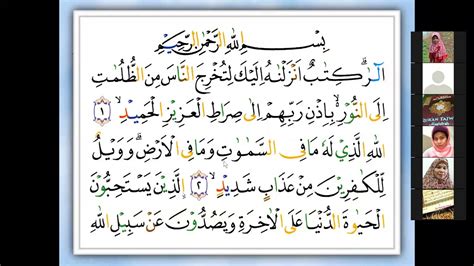 بِسْمِ اللهِ الرَّحْمٰنِ الرَّحِيْمِ
الۤرٰ ۗ كِتٰبٌ اَنْزَلْنٰهُ اِلَيْكَ لِتُخْرِجَ النَّاسَ مِنَ الظُّلُمٰتِ
اِلَى النُّوْرِ ەۙ بِاِذْنِ رَبِّهِمْ اِلٰى صِرَاطِ الْعَزِيْزِ الْحَمِيْدِۙ ١
اللهِ الَّذِيْ لَهٗ مَا فِى السَّمٰوٰتِ وَمَا فِى الْاَرْضِۗ وَوَيْلٌ
لِّلْكٰفِرِيْنَ مِنْ عَذَابٍ شَدِيْدٍۙ ٢ الَّذِيْنَ يَسْتَحِبُّوْنَ
الْحَيٰوةَ الدُّنْيَا عَلَى الْاٰخِرَةِ وَيَصُدُّوْنَ عَنْ سَبِيْلِ اللهِ